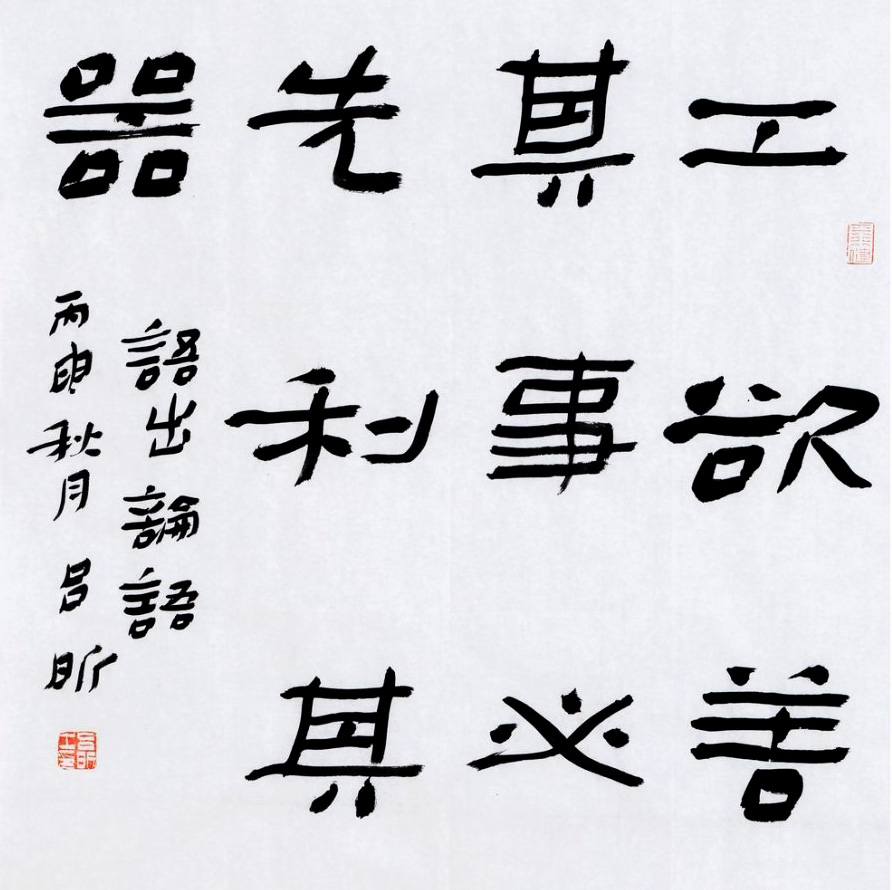 工欲善
其事必
先利其
器
語出論語
丙申秋月呂昕